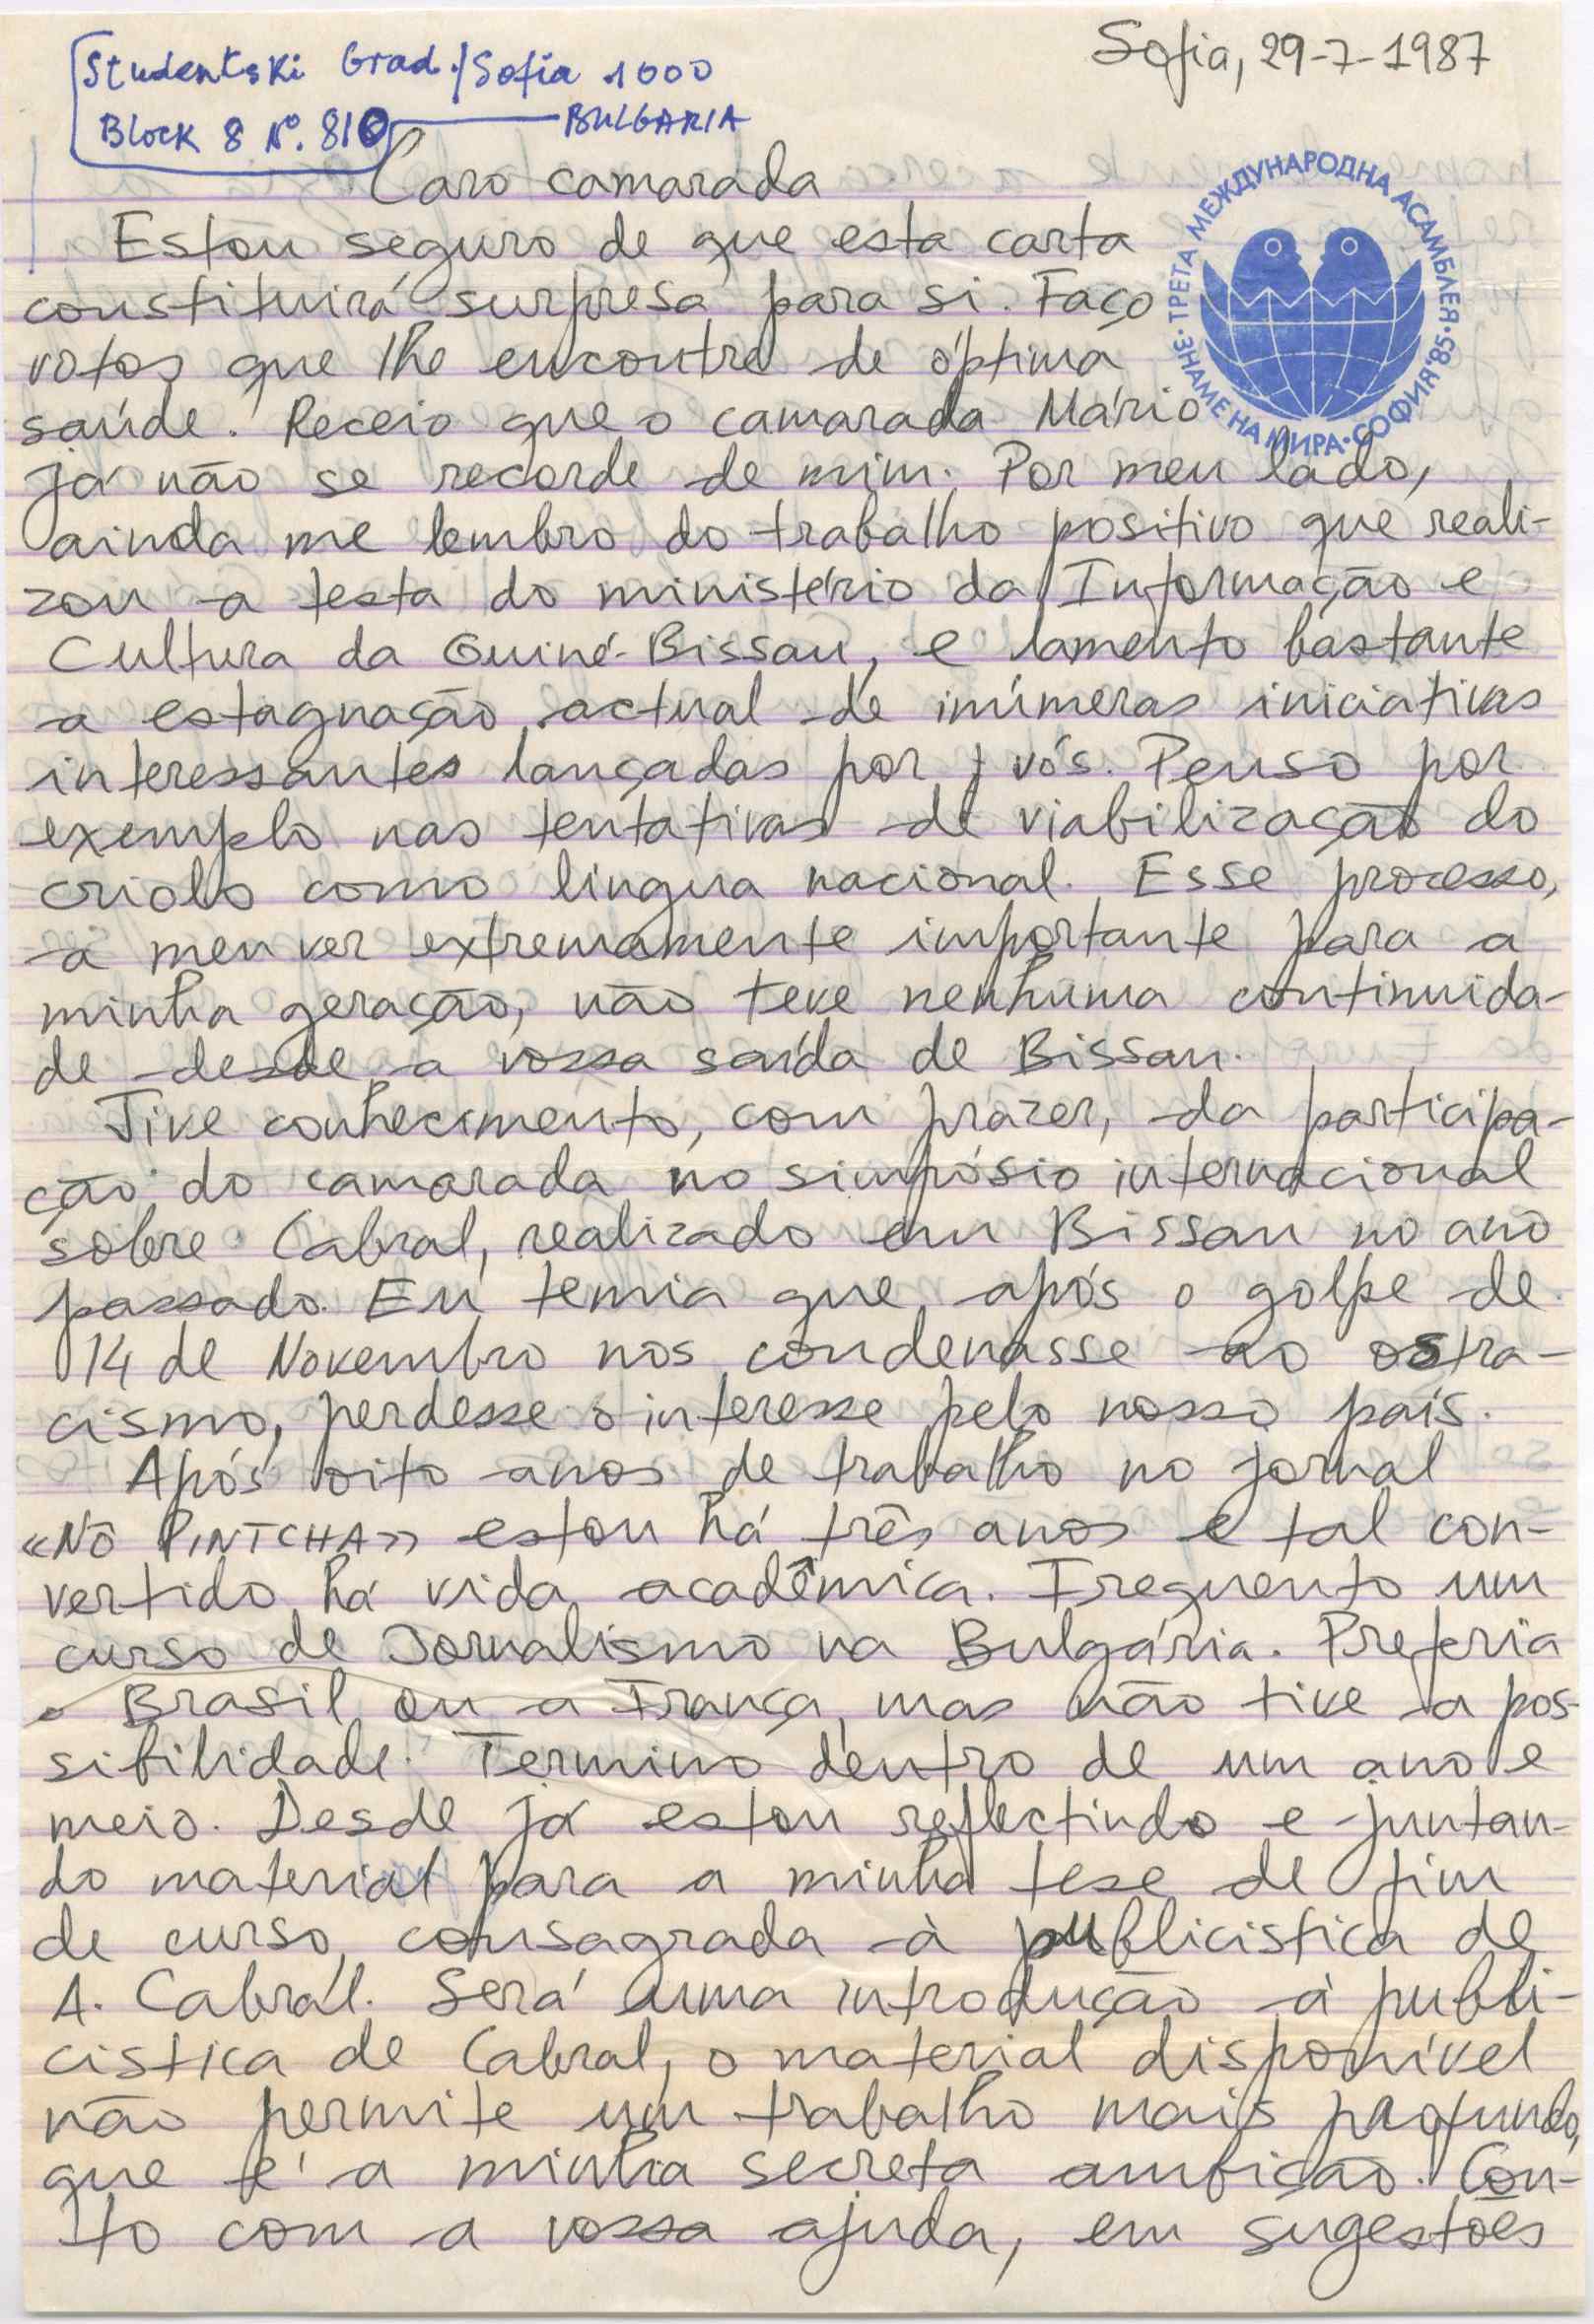 Studentski Grad./Sofia 1000
Block 8 Nº. 810 BULGARIA
Sofia, 29-7-1987
ТРЕТА МЕЖДУНАРОДНА АСАМБЛЕЯ • ЗНАМЕ НА МИРА • СОФИЯ '85
Caro camarada
Estou seguro de que esta carta
constituirá surpresa para si. Faço
votos que lhe encontre de óptima
saúde. Receio que o camarada Mário
já não se recorde de mim. Por meu lado,
ainda me lembro do trabalho positivo que reali-
zou a testa do ministério da Informação e
Cultura da Guiné-Bissau, e lamento bastante
a estagnação actual de inúmeras iniciativas
interessantes lançadas por vós. Penso por
exemplo nas tentativas de viabilização do
criolo como lingua nacional. Esse processo,
a meu ver extremamente importante para a
minha geração, não teve nenhuma continuida-
de desde a vossa saída de Bissau.
Tive conhecimento, com prazer, da participa-
ção do camarada no simpósio internacional
sobre Cabral, realizado em Bissau no ano
passado. Eu temia que, após o golpe de
14 de Novembro nos condenasse ao ostra-
cismo, perdesse o interesse pelo nosso país.
Após oito anos de trabalho no jornal
«NÔ PINTCHA» estou há três anos e tal con-
vertido há vida académica. Frequento um
curso de Jornalismo na Bulgária. Preferia
o Brasil ou a França, mas não tive a pos-
sibilidade. Termino dentro de um ano e
meio. Desde já estou reflectindo e juntan-
do material para a minha tese de fim
de curso, consagrada à publicistica de
A. Cabral. Será uma introdução à publi-
cistica de Cabral, o material disponível
não permite um trabalho mais profundo,
que é a minha secreta ambição. Con-
to com a vossa ajuda, em sugestões